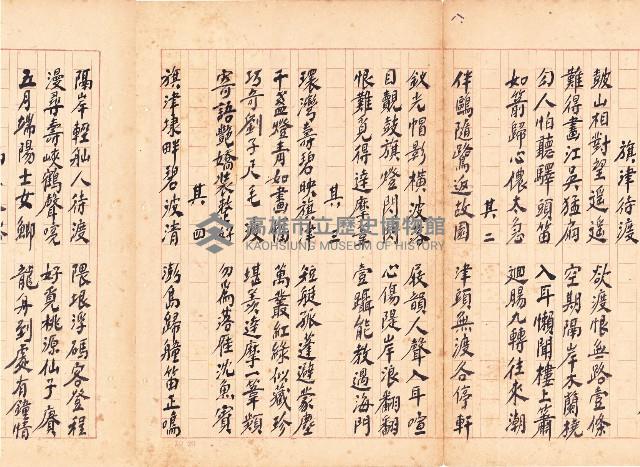 八
旗津待渡
鼓山相對望遙遙 欲渡恨無路壹條
難得畫江吳猛扇 空期隔岸木蘭橈
勾人怕聽驛頭笛 入耳懶聞樓上簫
如箭歸心儂太急 迴腸九轉往來潮
其二
伴鷗隨鷺返故園 津頭無渡各停軒
釵光帽影橫波 屐韻人聲入耳喧
目觀鼓旗燈門 心傷隄岸浪翻翻
恨難覓得達摩葦 壹躡能教過海門
其三
環灣壽碧映旗 短艇孤蓬避蒙塵
千盞燈青如畫 萬叢紅綠似藏珍
巧奇劉子尺毛 堪羨達摩一葦類
寄語艷嬌裝整好 勿為落雁沈魚賓
其四
旗津埭畔碧波清 渤島歸艟笛正鳴
隔岸輕舢人待渡 隈垠浮碼客登程
漫尋壽峽鶴聲唳 好覓桃源仙子賡
五月端陽士女鄉 龍舟到處有鐘情
高雄市立歷史博物館
KAOHSIUNG MUSEUM OF HISTORY